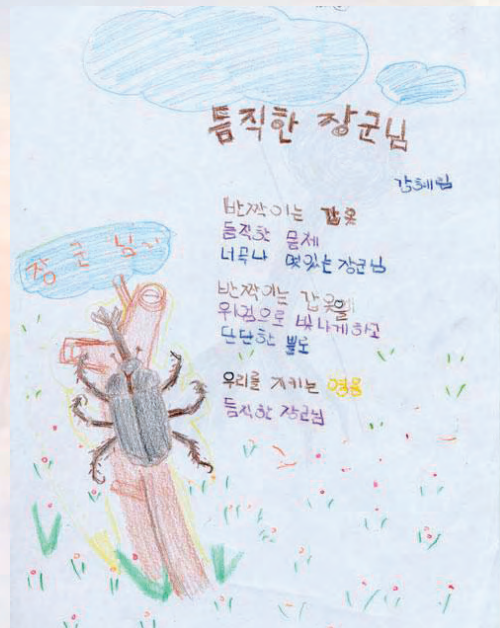 듬직한 장군님
강혜림
반짝이는 갑옷
듬직한 몸체
너무나 멋있는 장군님
반짝이는 갑옷을
위엄으로 빛나게 하고
단단한 뿔로
우리를 지키는 영웅
듬직한 장군님
장군님~